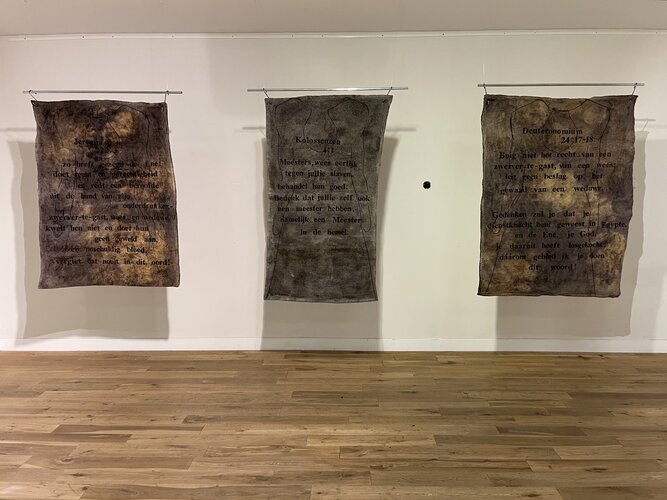 zo heeft gezegd de Ene:
doet recht en gerechtigheid
en redt een beroofde
uit de hand van zijn
onderdrukker,-
zwerver-te-gast, wees en weduwe,
kwelt hen niet en doet hun
geen geweld aan,
onschuldig bloed,
vergiet dat nooit in dit oord!
Kolossenzen
4:1
Meesters, wees eerlijk
tegen jullie slaven,
behandel hun goed.
Bedenk dat jullie zelf ook
een meester hebben,
namelijk een Meester
in de hemel.
Deuteronomium
24:17-18
Buig niet het recht van een
zwerver-te-gast, van een wees;
leg geen beslag op het
gewaad van een weduwe.
Gedenken zul je dat je
dienstknecht bent geweest in Egypte,
en de Ene, je God,
je daaruit heeft losgekocht;
daarom gebied ik je te doen
dit woord!